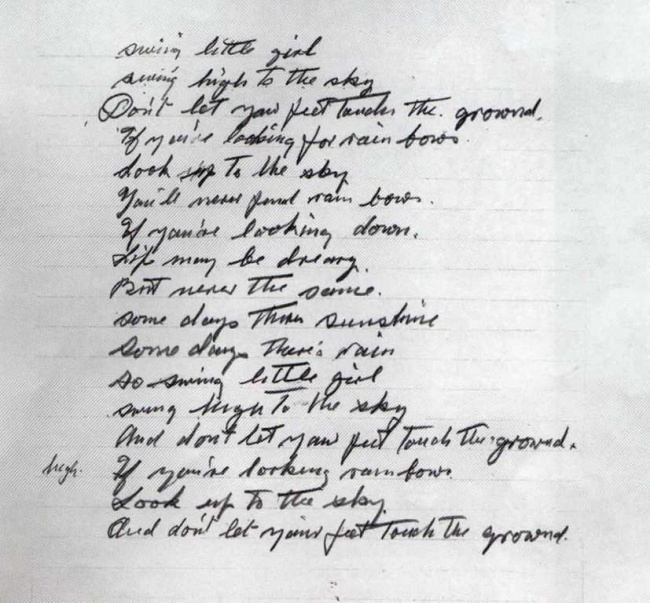 swing little girl
swing high to the sky
Don't let your feet touch the. grownd.
If you're looking for rain bows.
Look up to the sky
You'll never find rain bows.
If you're looking down.
Life may be dreary.
But never the same.
some days theres sunshine
Some days there's rain
so swing little girl
swing high to the sky
And don't let your feet touch the grownd.
high. If you're looking rainbows.
Look up to the sky.
And don't let your feet touch the grownd.